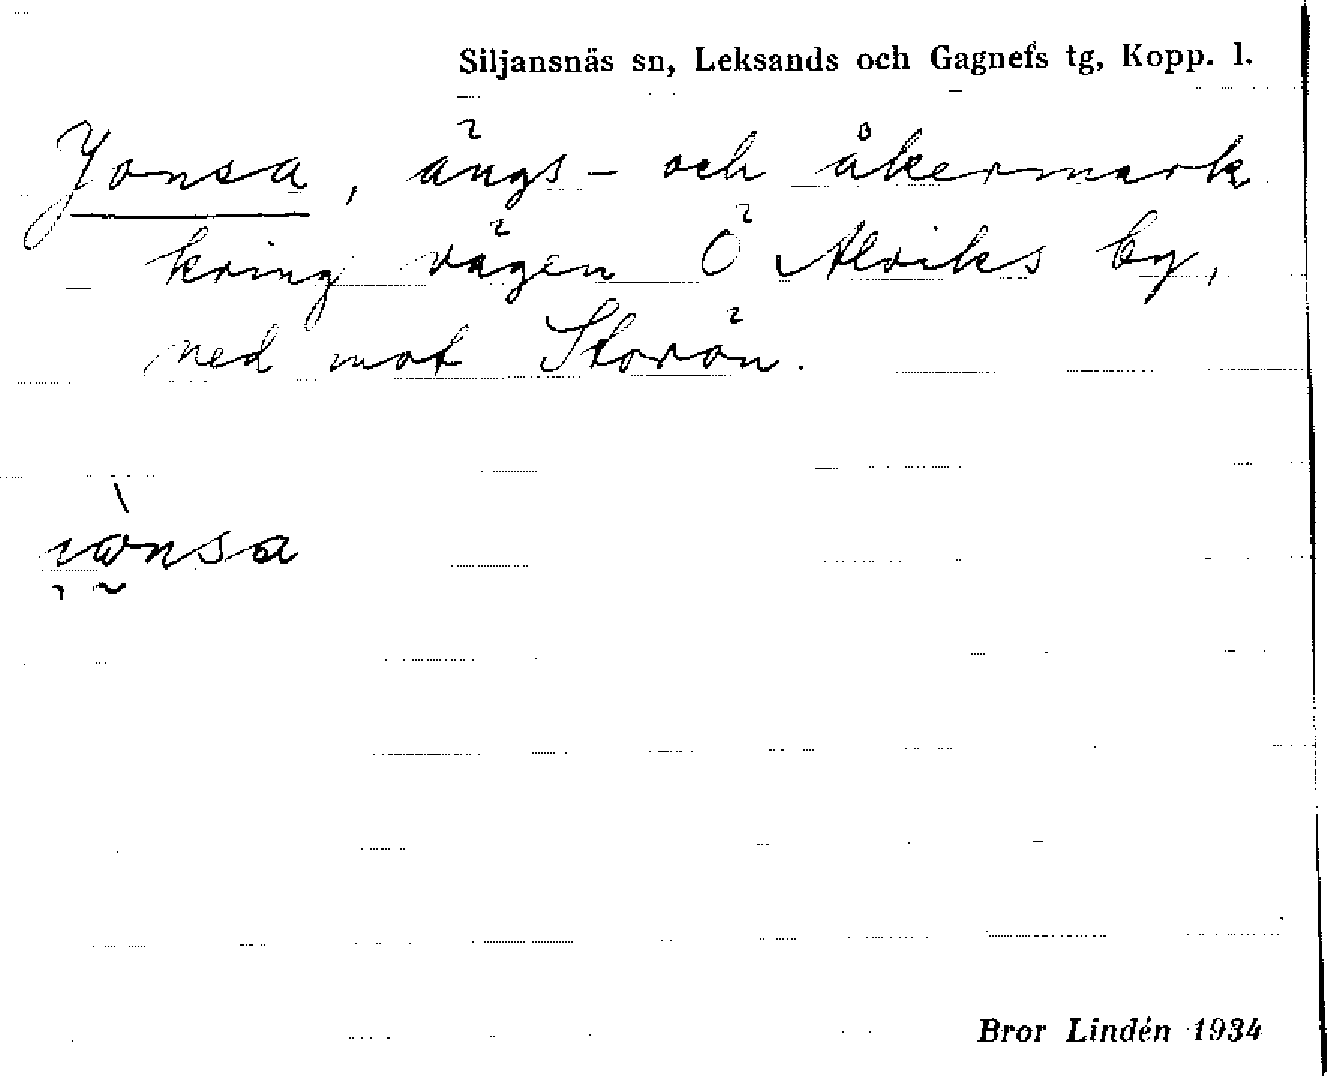 Siljansnäs sn, Leksands och Gagnefs tg, Kopp. l.
Yonsa, ängs- och åkermark
kring vägen Ö Alviks by,
ned mot Storön.
Bror Lindén 1934